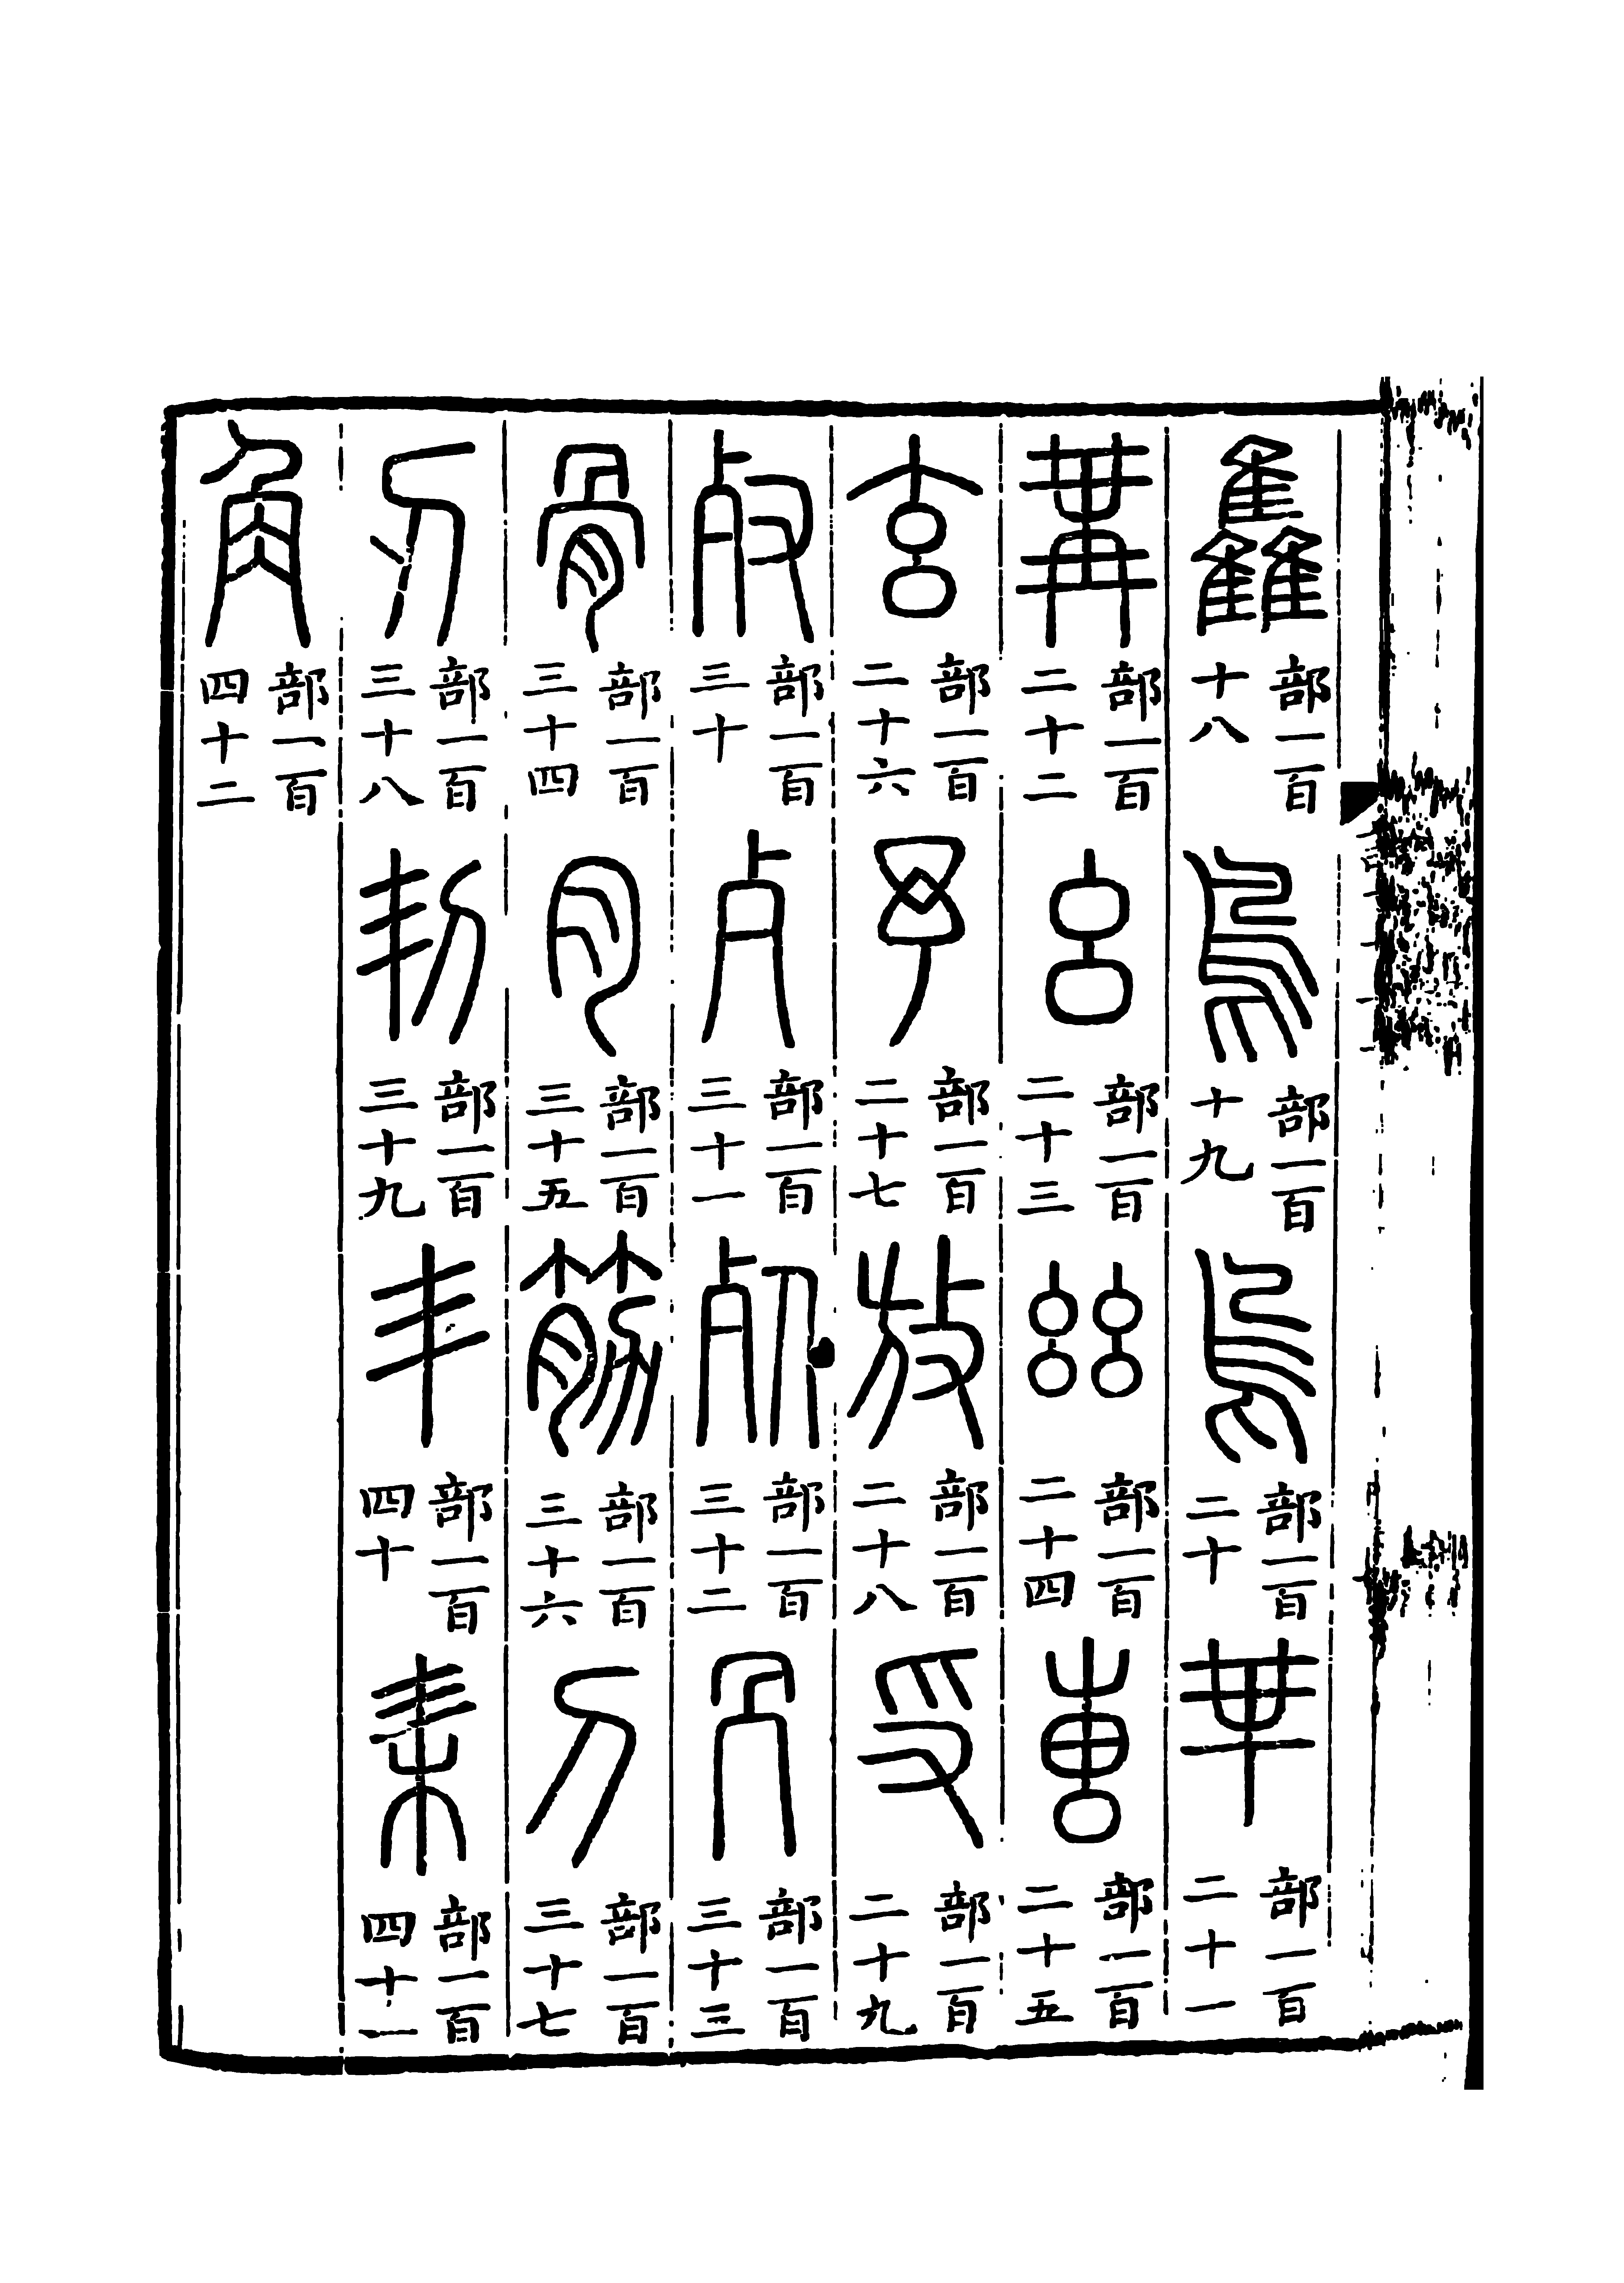 雥部一百十八鳥部一百十九烏部一百二十𠦒部一百二十一
冓部一百二十二幺部一百二十三𢆶部一百二十四叀部一百二十五
玄部一百二十六予部一百二十七放部一百二十八𠬪部一百二十九
𣦼部一百三十歺部一百三十一死部一百三十二冎部一百三十三
骨部一百三十四肉部一百三十五筋部一百三十六刀部一百三十七
刃部一百三十八㓞部一百三十九丯部一百四十耒部一百四十一
角部一百四十二